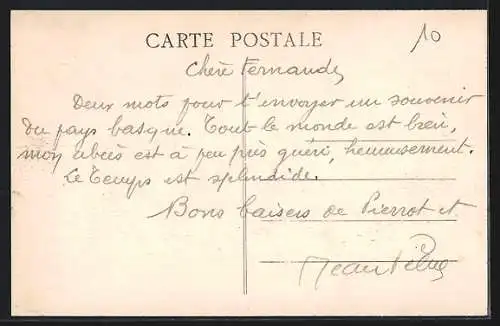 CARTE POSTALE
10
Chère Fernande,
Deux mots pour t'envoyer un souvenir
du pays basque. Tout le monde est bien,
mon abcès est à peu près guéri, heureusement.
Le temps est splendide.
Bons baisers de Pierrot et
Jean